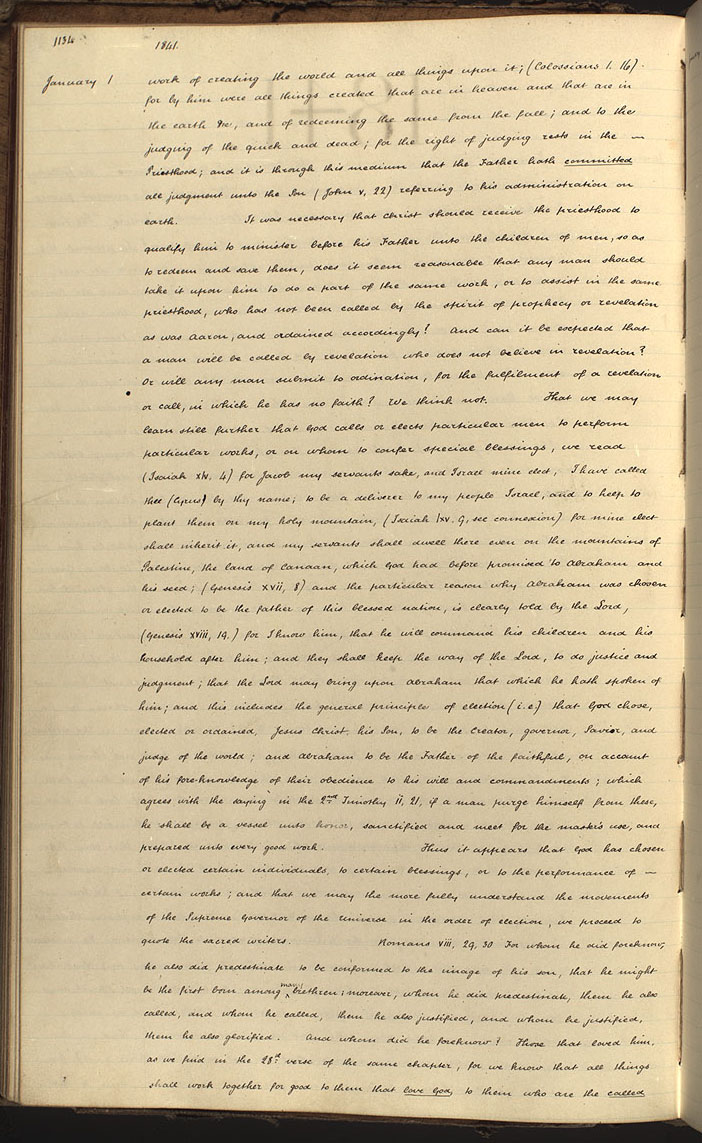 1134
1841.
January 1 work of creating the world and all things upon it; (Colossians 1. 16).
for by him were all things created that are in heaven and that are in
the earth &c, and of redeeming the same from the fall; and to the
judging of the quick and dead; for the right of judging rests in the —
Priesthood; and it is through this medium that the Father hath committed
all judgment unto the Son (John v, 22) referring to his administration on
earth. It was necessary that Christ should receive the priesthood to
qualify him to minister before his Father unto the children of men, so as
to redeem and save them, does it seem reasonable that any man should
take it upon him to do a part of the same work, or to assist in the same
priesthood, who has not been called by the spirit of prophecy or revelation
as was Aaron, and ordained accordingly? And can it be expected that
a man will be called by revelation who does not believe in revelation?
Or will any man submit to ordination, for the fulfilment of a revelation
or call, in which he has no faith? We think not. That we may
learn still further that God calls or elects particular men to perform
particular works, or on whom to confer special blessings, we read
(Isaiah xlv, 4) for Jacob my servants sake, and Israel mine elect, I have called
thee (Cyrus) by thy name; to be a deliverer to my people Israel, and to help to
plant them on my holy mountain, (Isaiah lxv. 9, see connexion) for mine elect
shall inherit it, and my servants shall dwell there even on the mountains of
Palestine, the land of Canaan, which God had before promised to Abraham and
his seed; (Genesis xvii, 8) and the particular reason why Abraham was chosen
or elected to be the father of this blessed nation, is clearly told by the Lord,
(Genesis xviii, 19.) for I know him, that he will command his children and his
household after him; and they shall keep the way of the Lord, to do justice and
judgment; that the Lord may bring upon Abraham that which he hath spoken of
him; and this includes the general principle of election (i.e.) that God chose,
elected or ordained, Jesus Christ, his Son, to be the Creator, governor, Savior, and
judge of the world; and Abraham to be the Father of the faithful, on account
of his fore-knowledge of their obedience to his will and commandments; which
agrees with the saying in the 2nd Timothy ii, 21, if a man purge himself from these,
he shall be a vessel unto honor, sanctified and meet for the master's use, and
prepared unto every good work. Thus it appears that God has chosen
or elected certain individuals, to certain blessings, or to the performance of —
certain works; and that we may the more fully understand the movements
of the Supreme Governor of the Universe in the order of election, we proceed to
quote the sacred writers. Romans viii, 29, 30 For whom he did foreknow,
he also did predestinate to be conformed to the image of his son, that he might
be the first born among many brethren; moreover, whom he did predestinate, them he also
called, and whom he called, them he also justified, and whom he justified,
them he also glorified. And whom did he foreknow? Those that loved him,
as we find in the 28th verse of the same chapter, for we know that all things
shall work together for good to them that love God, to them who are the called